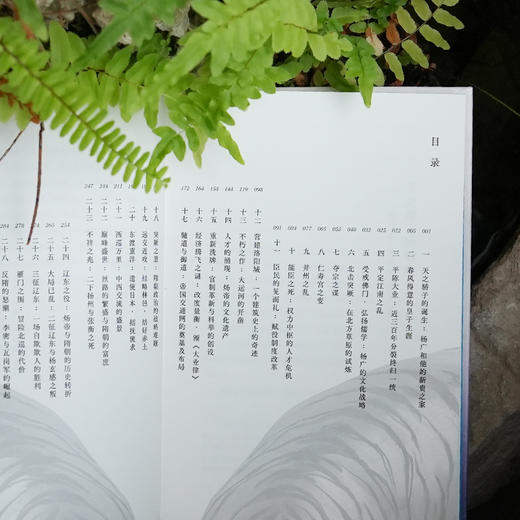 目录
001 一 天之骄子的诞生：杨广和他的新贵之家
009 二 春风得意的皇子生涯
三 平陈大业：近三百年分裂终归一统
025 四 平定江南之乱
五 受戒佛门，弘扬儒学：杨广的文化战略
六 北击突厥，在北方草原的试炼
七 夺宗之谋
八 仁寿宫之变
077 九 并州之乱
084 十 能臣之死：权力中枢的人才危机
091 十一 臣民的见面礼：赋役制度改革
098 十二 营建洛阳城：一个建筑史上的奇迹
119 十三 不朽之作：大运河的开凿
144 十四 人才的涌现：炀帝的文化遗产
154 十五 重新洗牌：官制革新与科举的创设
164 十六 经济腾飞之谜：改度量衡，颁《大业律》
172 十七 驰道与御道：帝国交通网的奠基及布局
十八 突厥之患：
十九 远交近攻：经略林邑，结好赤土
二十 东渡重洋：遣使日本，招抚流求
211 二十一 西巡万里：中西交流的盛景
二十二 巅峰盛世：丝路的繁盛与隋朝的富庶
247 二十三 不祥之兆：二下扬州与张衡之死
254 二十四 辽东之役：炀帝与隋朝的历史转折
264 二十五 大局已乱：二征辽东与杨玄感之叛
270 二十六 三征辽东：一场自欺欺人的胜利
278 二十七 雁门之围：冒险北巡的代价
284 二十八 反隋的怒潮：李密与瓦岗军的崛起